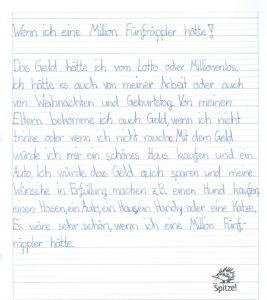 Wenn ich eine Million Fünfräppler hätte!
Das Geld hätte ich vom Lotto oder Millionenlos.
Ich hätte es auch von meiner Arbeit oder auch
von Weihnachten und Geburtstag. Von meinen
Eltern bekomme ich auch Geld, wenn ich nicht
trinke oder wenn ich nicht rauche. Mit dem Geld
würde ich mir ein schönes Haus kaufen und ein
Auto. Ich würde das Geld auch sparen und meine
Wünsche in Erfüllung machen z.B. einen Hund kaufen,
einen Hasen, ein Auto, ein Haus, ein Handy oder eine Katze.
Es wäre sehr schön, wenn ich eine Million Fünf-
räppler hätte.
Spitze!